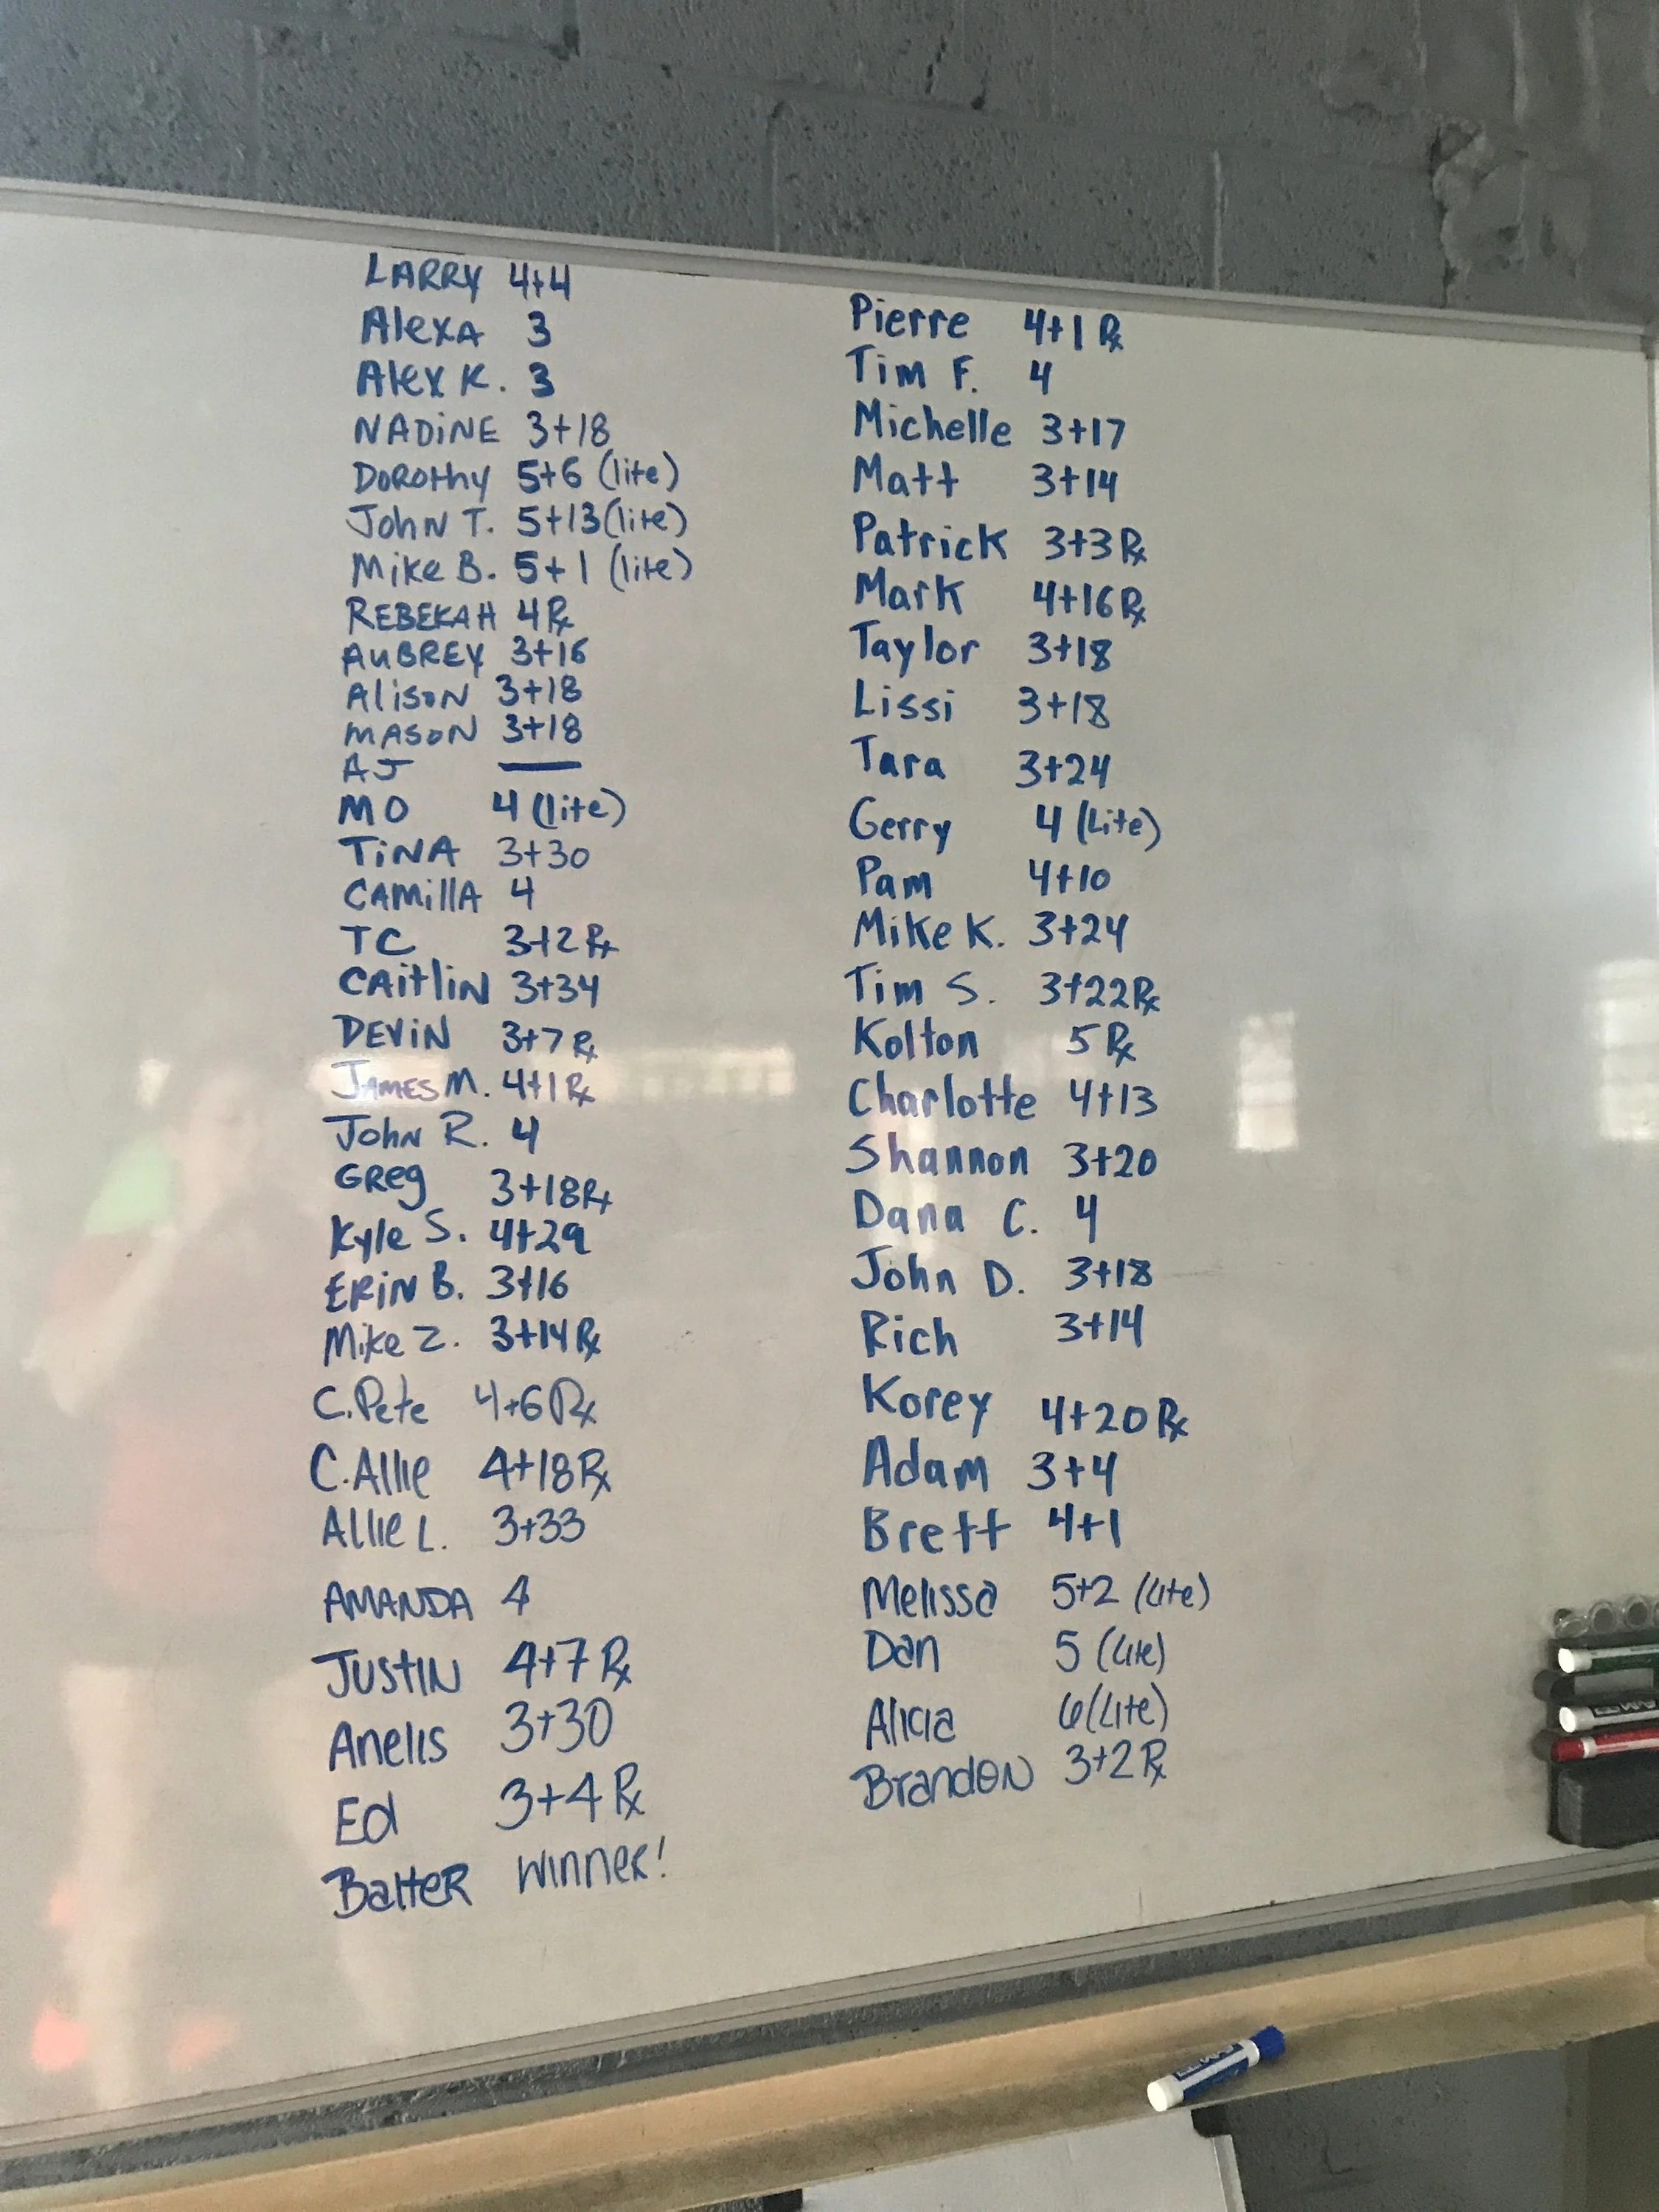 LARRY 4+4
AlexA 3
Alex K. 3
NADiNE 3+18
DoRotHy 5+6 (lite)
JohN T. 5+13 (lite)
Mike B. 5+1 (lite)
REBEKAH 4 Rx
AUBREY 3+16
AlisoN 3+18
MASON 3+18
AJ —
MO 4 (lite)
TiNA 3+30
CAMillA 4
TC 3+2 Rx
CAitliN 3+34
DEViN 3+7 Rx
JAMES M. 4+1 Rx
JohN R. 4
GReg 3+18 Rx
Kyle S. 4+29
ERiN B. 3+16
Mike Z. 3+14 Rx
C.Pete 4+6 Rx
C.Allie 4+18 Rx
Allie L. 3+33
AMANDA 4
JUStIN 4+7 Rx
Anelis 3+30
Ed 3+4 Rx
WinneR!
Pierre 4+1 Rx
Tim F. 4
Michelle 3+17
Matt 3+14
Patrick 3+3 Rx
Mark 4+16 Rx
Taylor 3+18
Lissi 3+18
Tara 3+24
Gerry 4 (Lite)
Pam 4+10
Mike K. 3+24
Tim S. 3+22 Rx
Kolton 5 Rx
Charlotte 4+13
Shannon 3+20
Dana C. 4
John D. 3+18
Rich 3+14
Korey 4+20 Rx
Adam 3+4
Brett 4+1
Melissa 5+2 (Lite)
Dan 5 (Lite)
Alicia 6 (Lite)
BrandoN 3+2 Rx